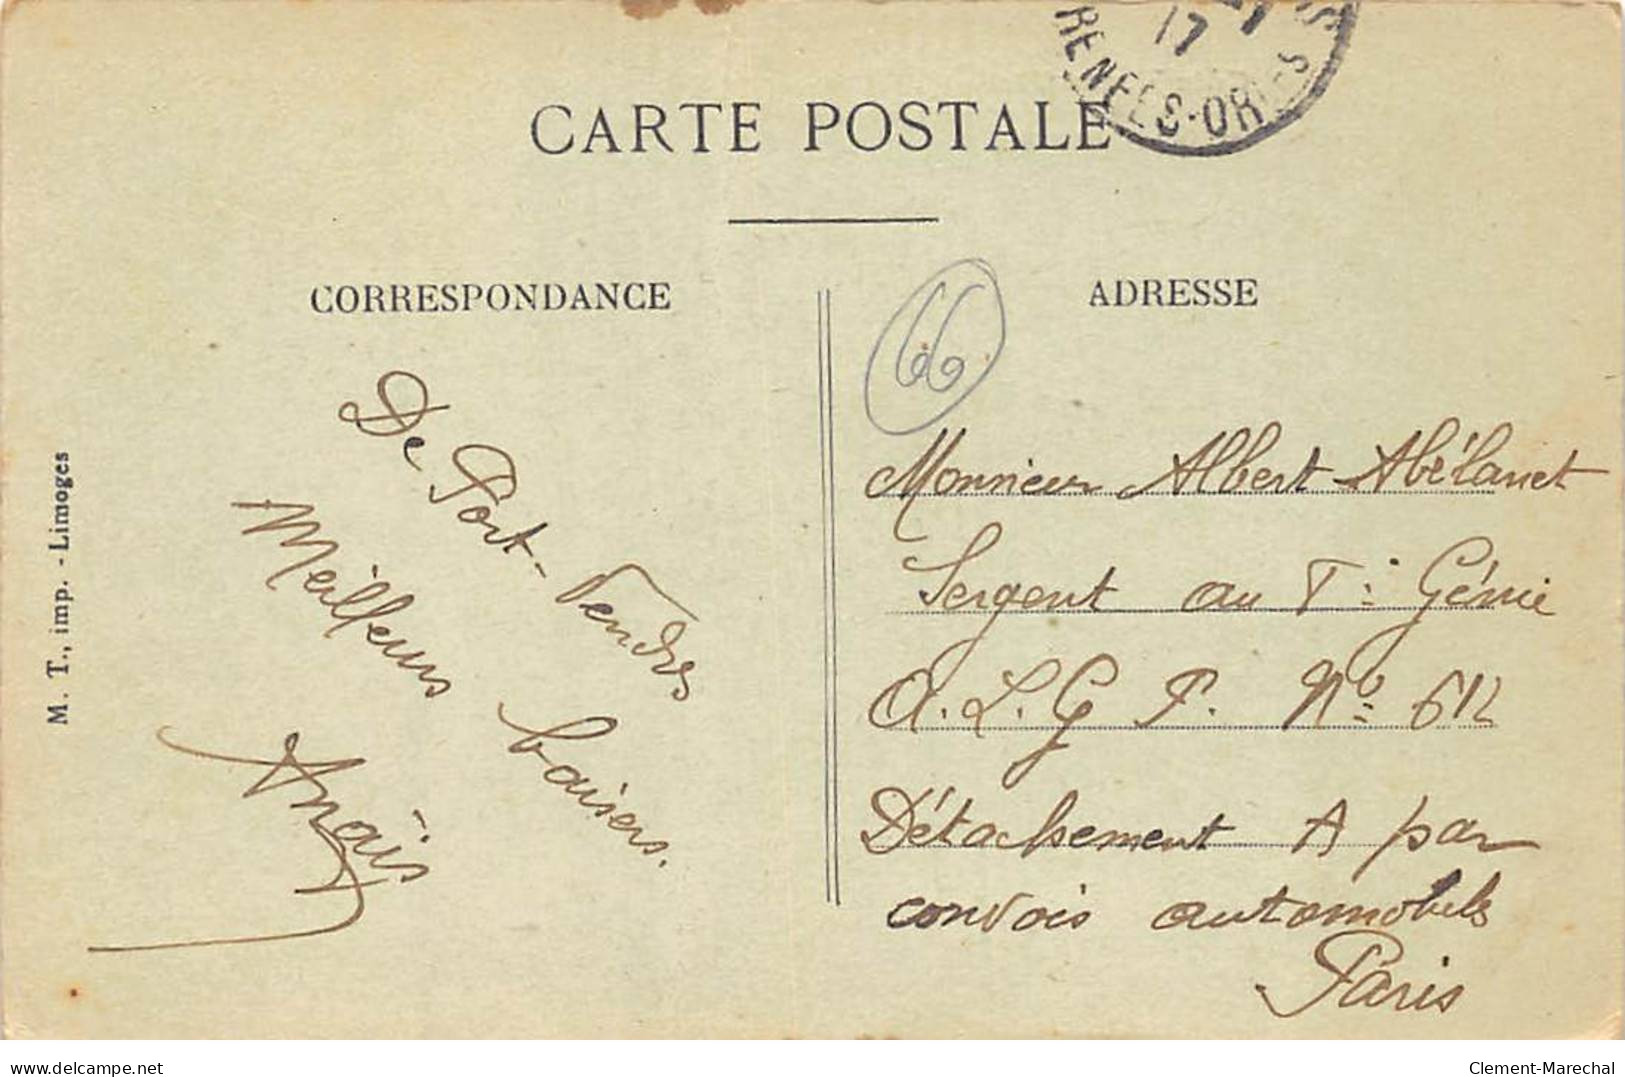 17
RENEES-ORIES
CARTE POSTALE
CORRESPONDANCE
ADRESSE
66
De Port-Vendres
Meilleurs baisers.
Anaïs
Monsieur Albert Abélanet
Sergent au T: Génie
A. L. G P. Nº 612
Détachement A par
convois automobiles
Paris
M. T., imp. - Limoges
delcampe.net
Clement-Marechal